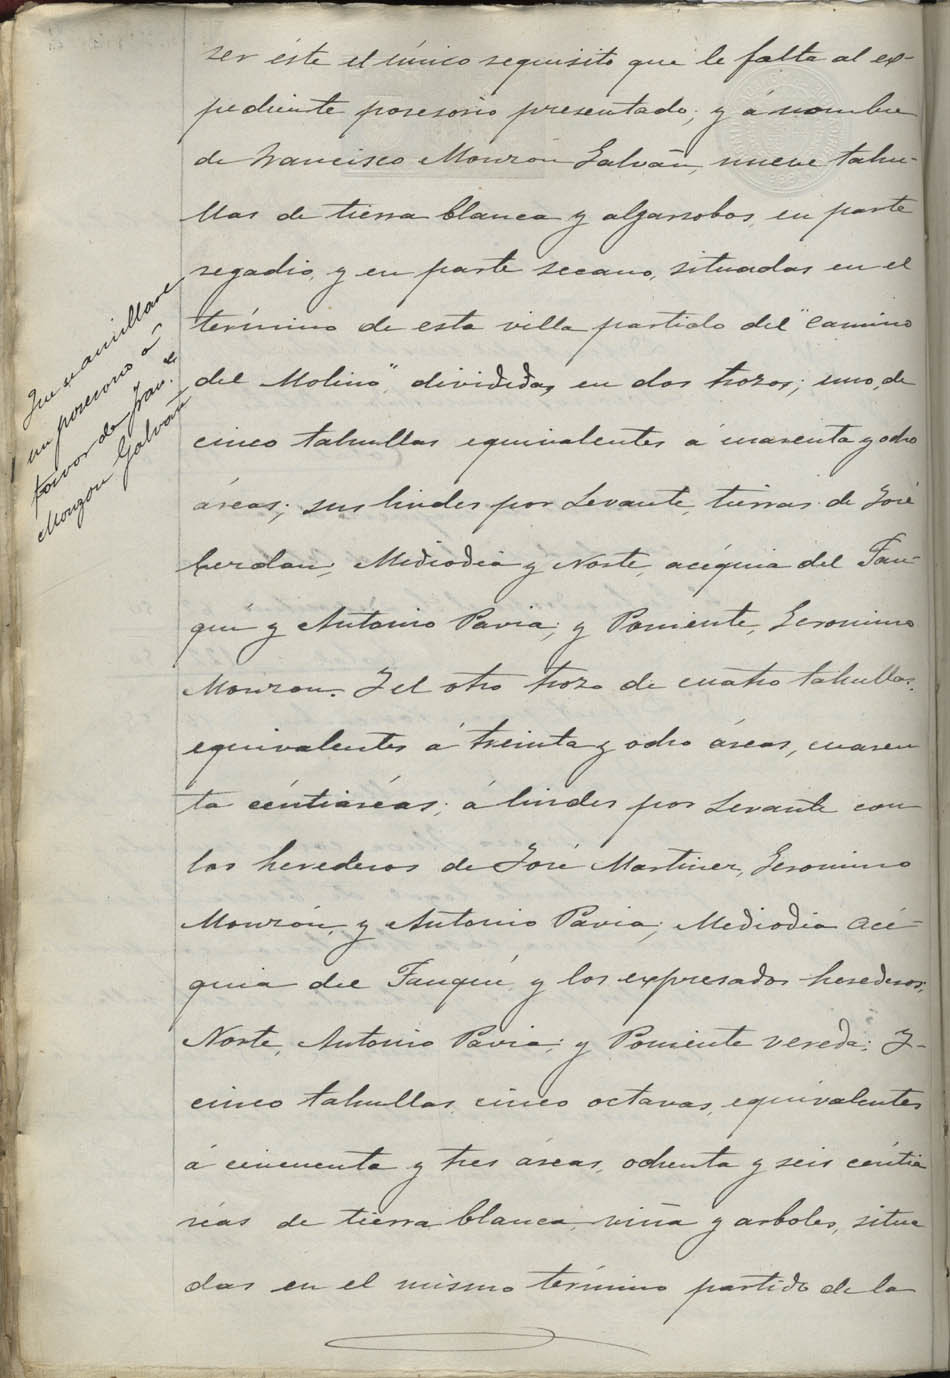 ser éste el único requisito que le falta al ex-
pediente posesorio presentado; y á nombre
de Francisco Monzón Galván, nueve tahu-
llas de tierra blanca y algarrobos, en parte
regadio, y en parte secano, situadas en el
término de esta villa partido del "Camino
del Molino", divididas en dos trozos; uno, de
cinco tahullas equivalentes á cuarenta y ocho
áreas; sus lindes por Levante, tierras de José
Cerdan; Mediodia y Norte, acéquia del Fau-
quí y Antonio Pavia; y Poniente, Geronimo
Monzon. Y el otro trozo de cuatro tahullas,
equivalentes á treinta y ocho áreas, cuaren
ta céntiaréas; á lindes por Levante con
los herederos de José Martinez, Geronimo
Monzón, y Antonio Pavia; Mediodia acé-
quia del Fauquí, y los expresados herederos;
Norte, Antonio Pavia; y Poniente vereda; Y-
cinco tahullas, cinco octavas, equivalentes
á cincuenta y tres áreas, ochenta y seis céntia
réas de tierra blanca, viña y arboles, situa
das en el mismo término partido de la
Que se amillare
un posesorio á
favor de Fran.co
Monzon Galván